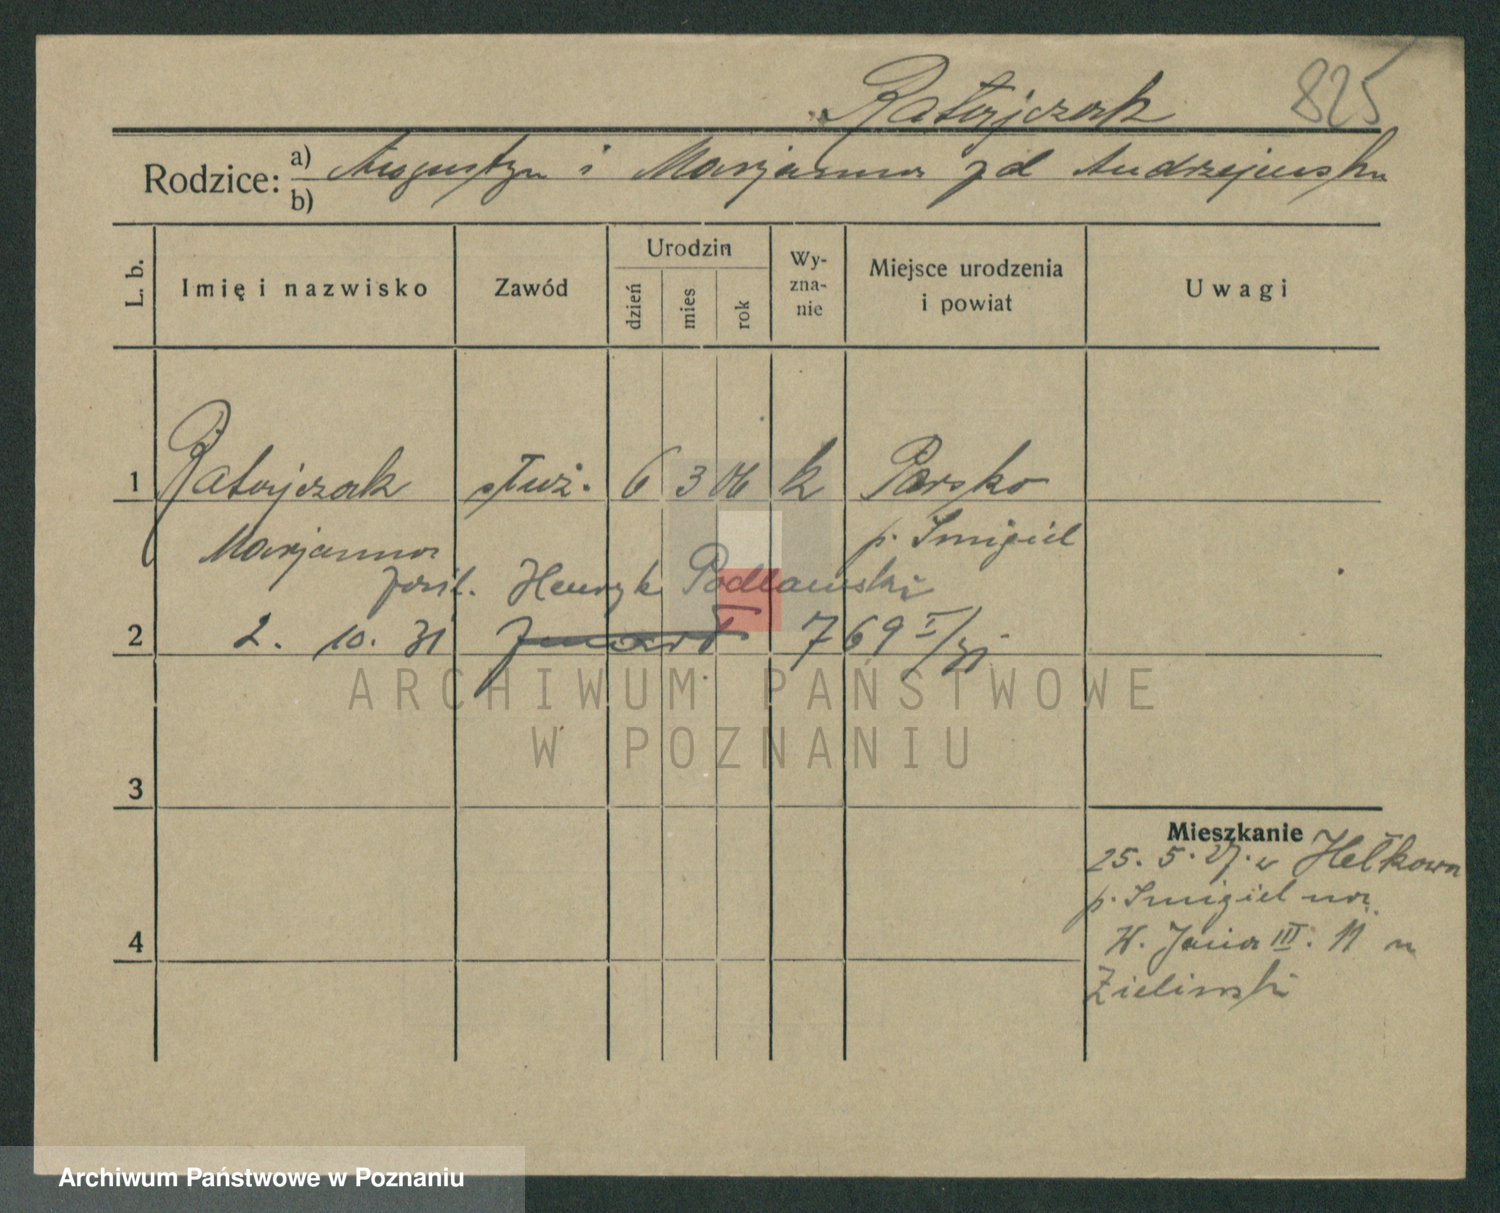 Ratajczak 825
Rodzice: a) Augustyn i Marjanna zd Andrzejewska
b)
L. b. Imię i nazwisko Zawód Urodzin dzień mies rok Wy-zna-nie Miejsce urodzenia i powiat Uwagi
1 Ratajczak służ. 6 3 06 k Parsko
Marjanna p. Śmigiel
Henryk Podlawski
2 2. 10. 31 769 I/31
ARCHIWUM PAŃSTWOWE
W POZNANIU
3
Mieszkanie
25. 5. 27. w Hełkowa
p. Śmigiel na
4 W. Jana III. 11 u
Zielinski
Archiwum Państwowe w Poznaniu